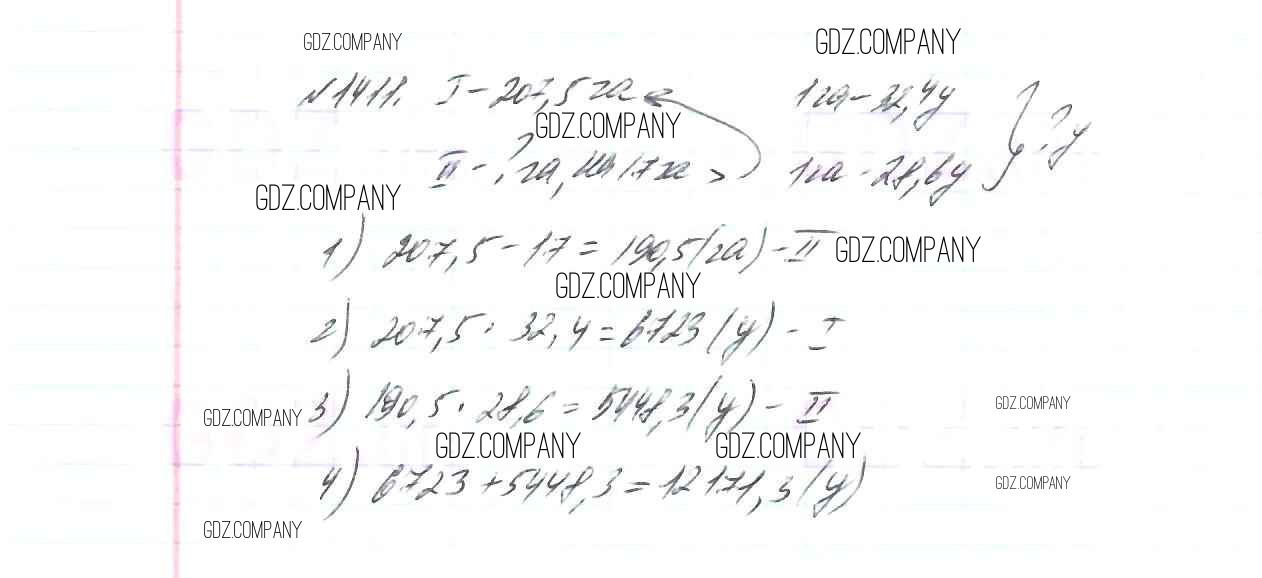 GDZ.COMPANY GDZ.COMPANY
№1411. I - 207,5 га 1 га - 32,4 ц
GDZ.COMPANY
II - ? га, на 17 га > 1 га - 28,6 ц } ? ц
GDZ.COMPANY
1) 207,5 - 17 = 190,5 (га) - II GDZ.COMPANY
GDZ.COMPANY
2) 207,5 · 32,4 = 6723 (ц) - I
GDZ.COMPANY 3) 190,5 · 28,6 = 5448,3 (ц) - II GDZ.COMPANY
GDZ.COMPANY GDZ.COMPANY
4) 6723 + 5448,3 = 12171,3 (ц) GDZ.COMPANY
GDZ.COMPANY